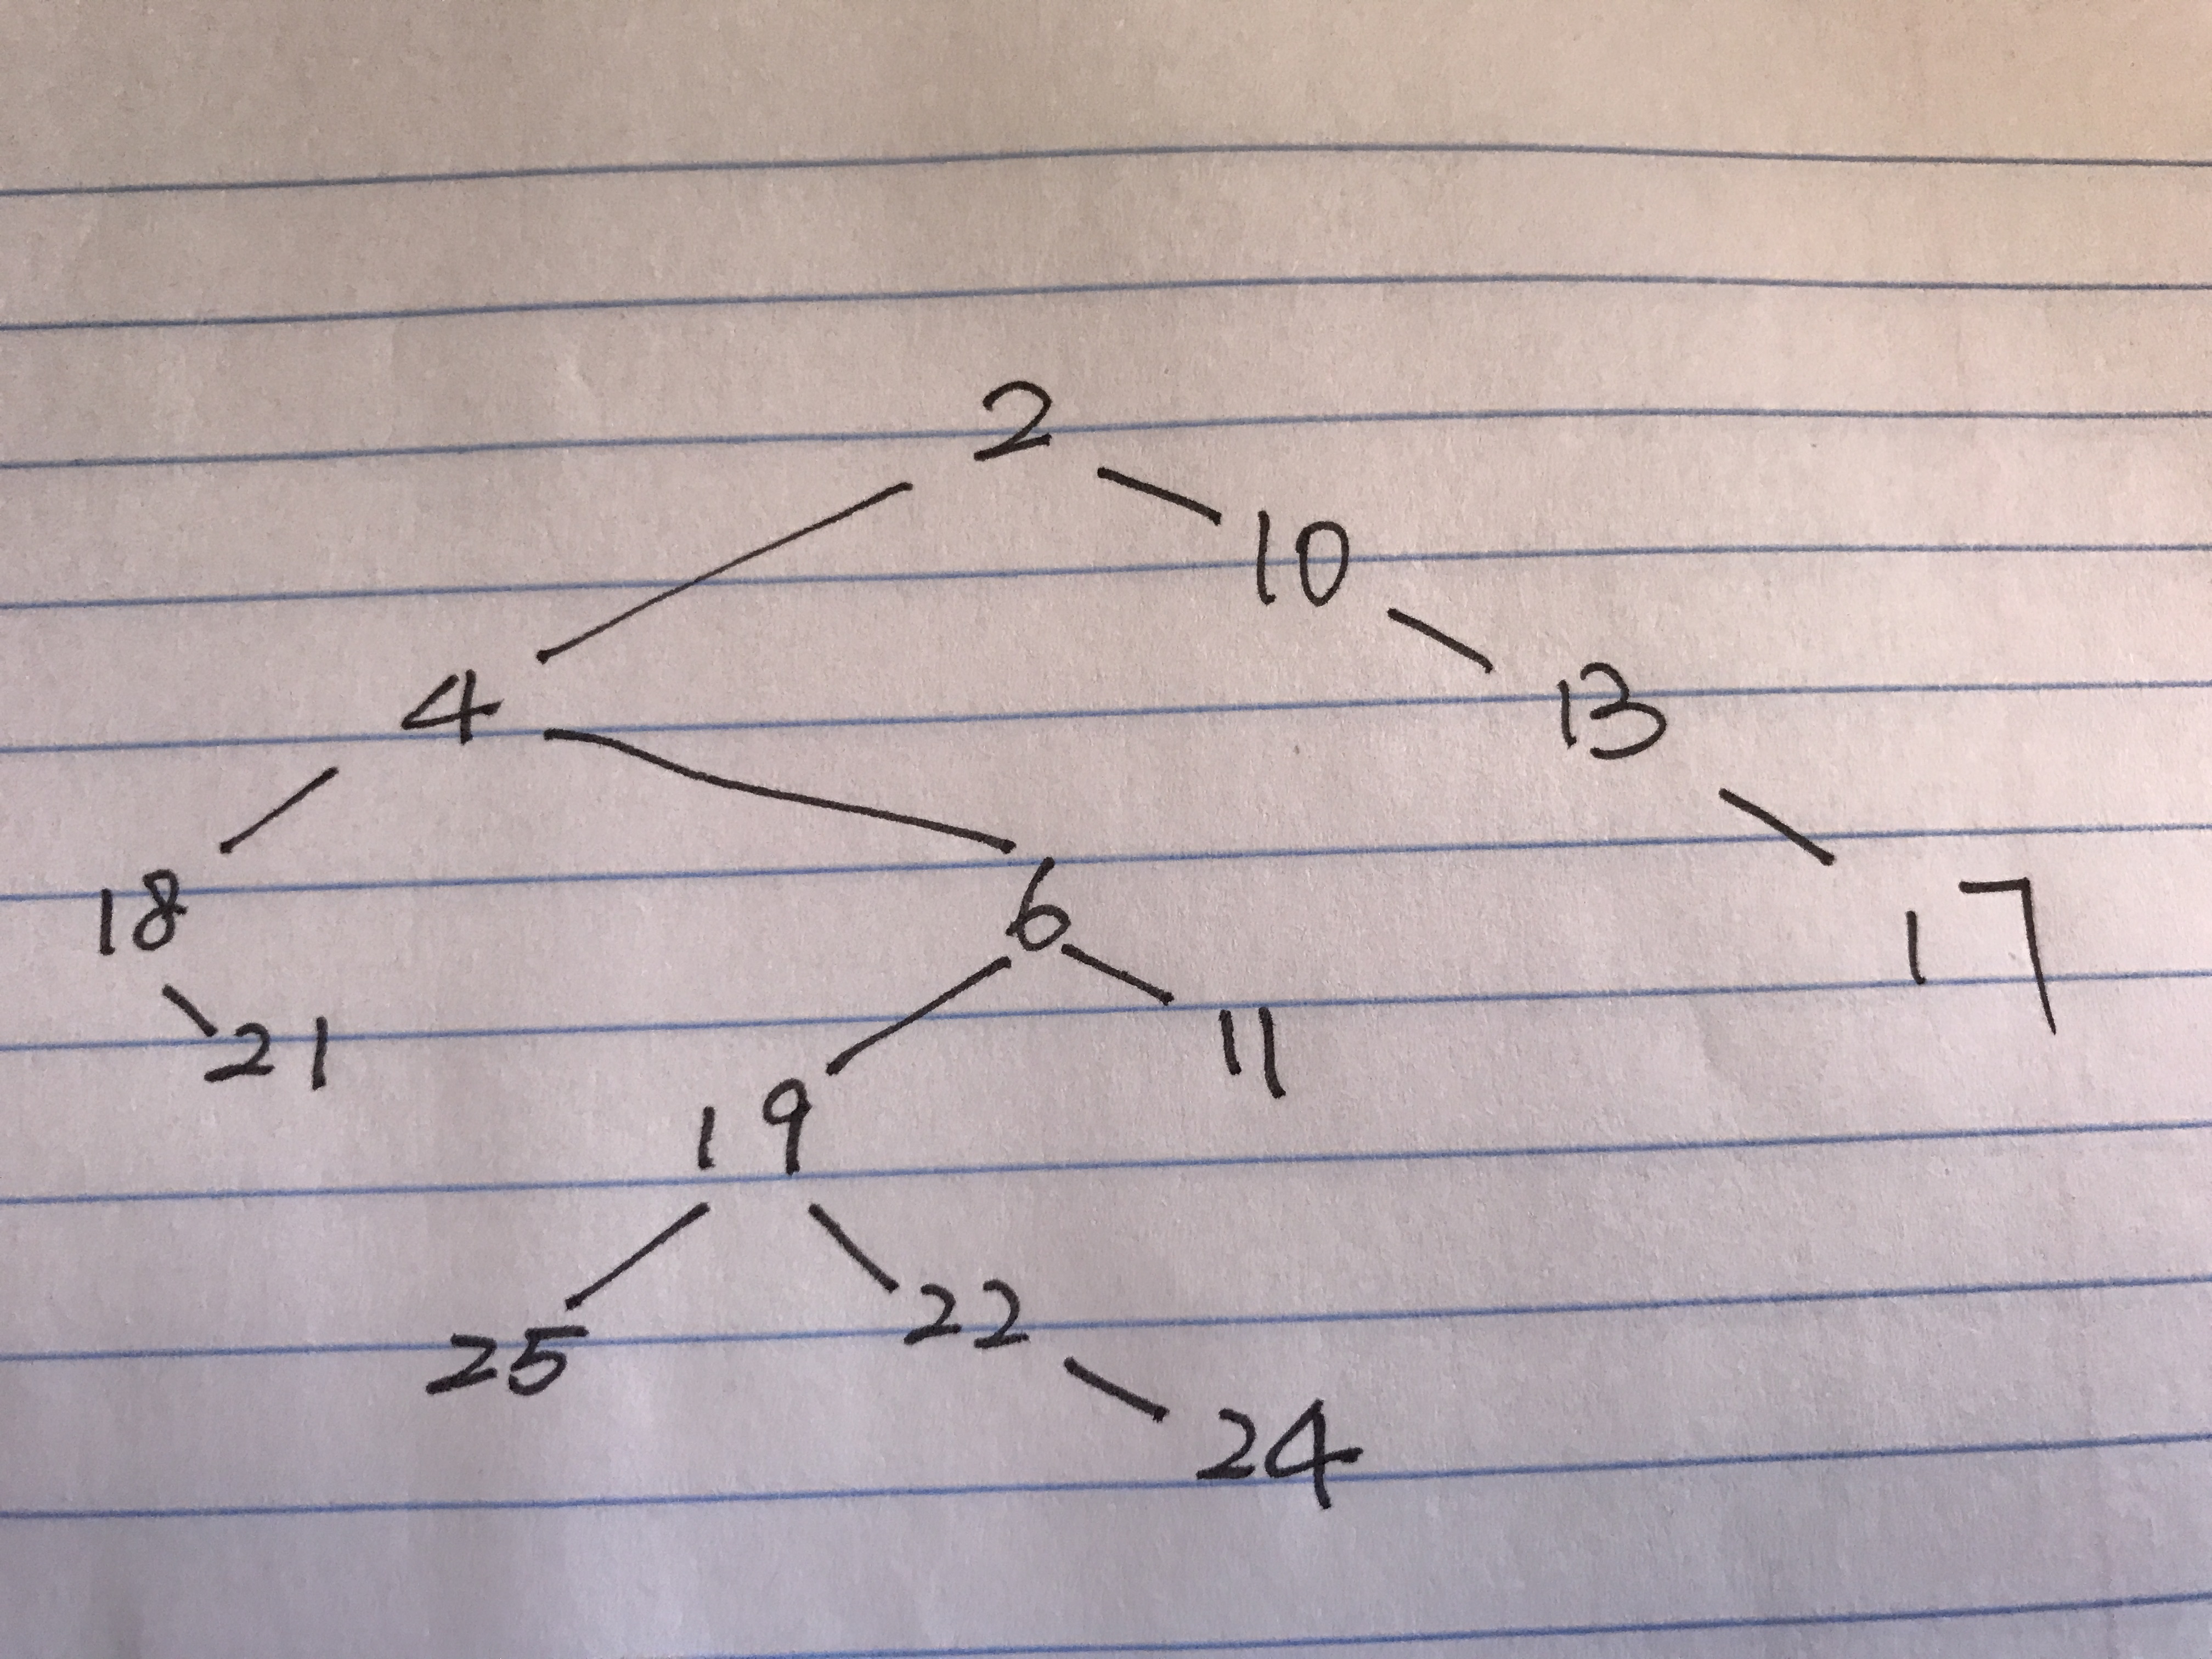 2
10
4
13
18
6
17
21
11
19
25
22
24